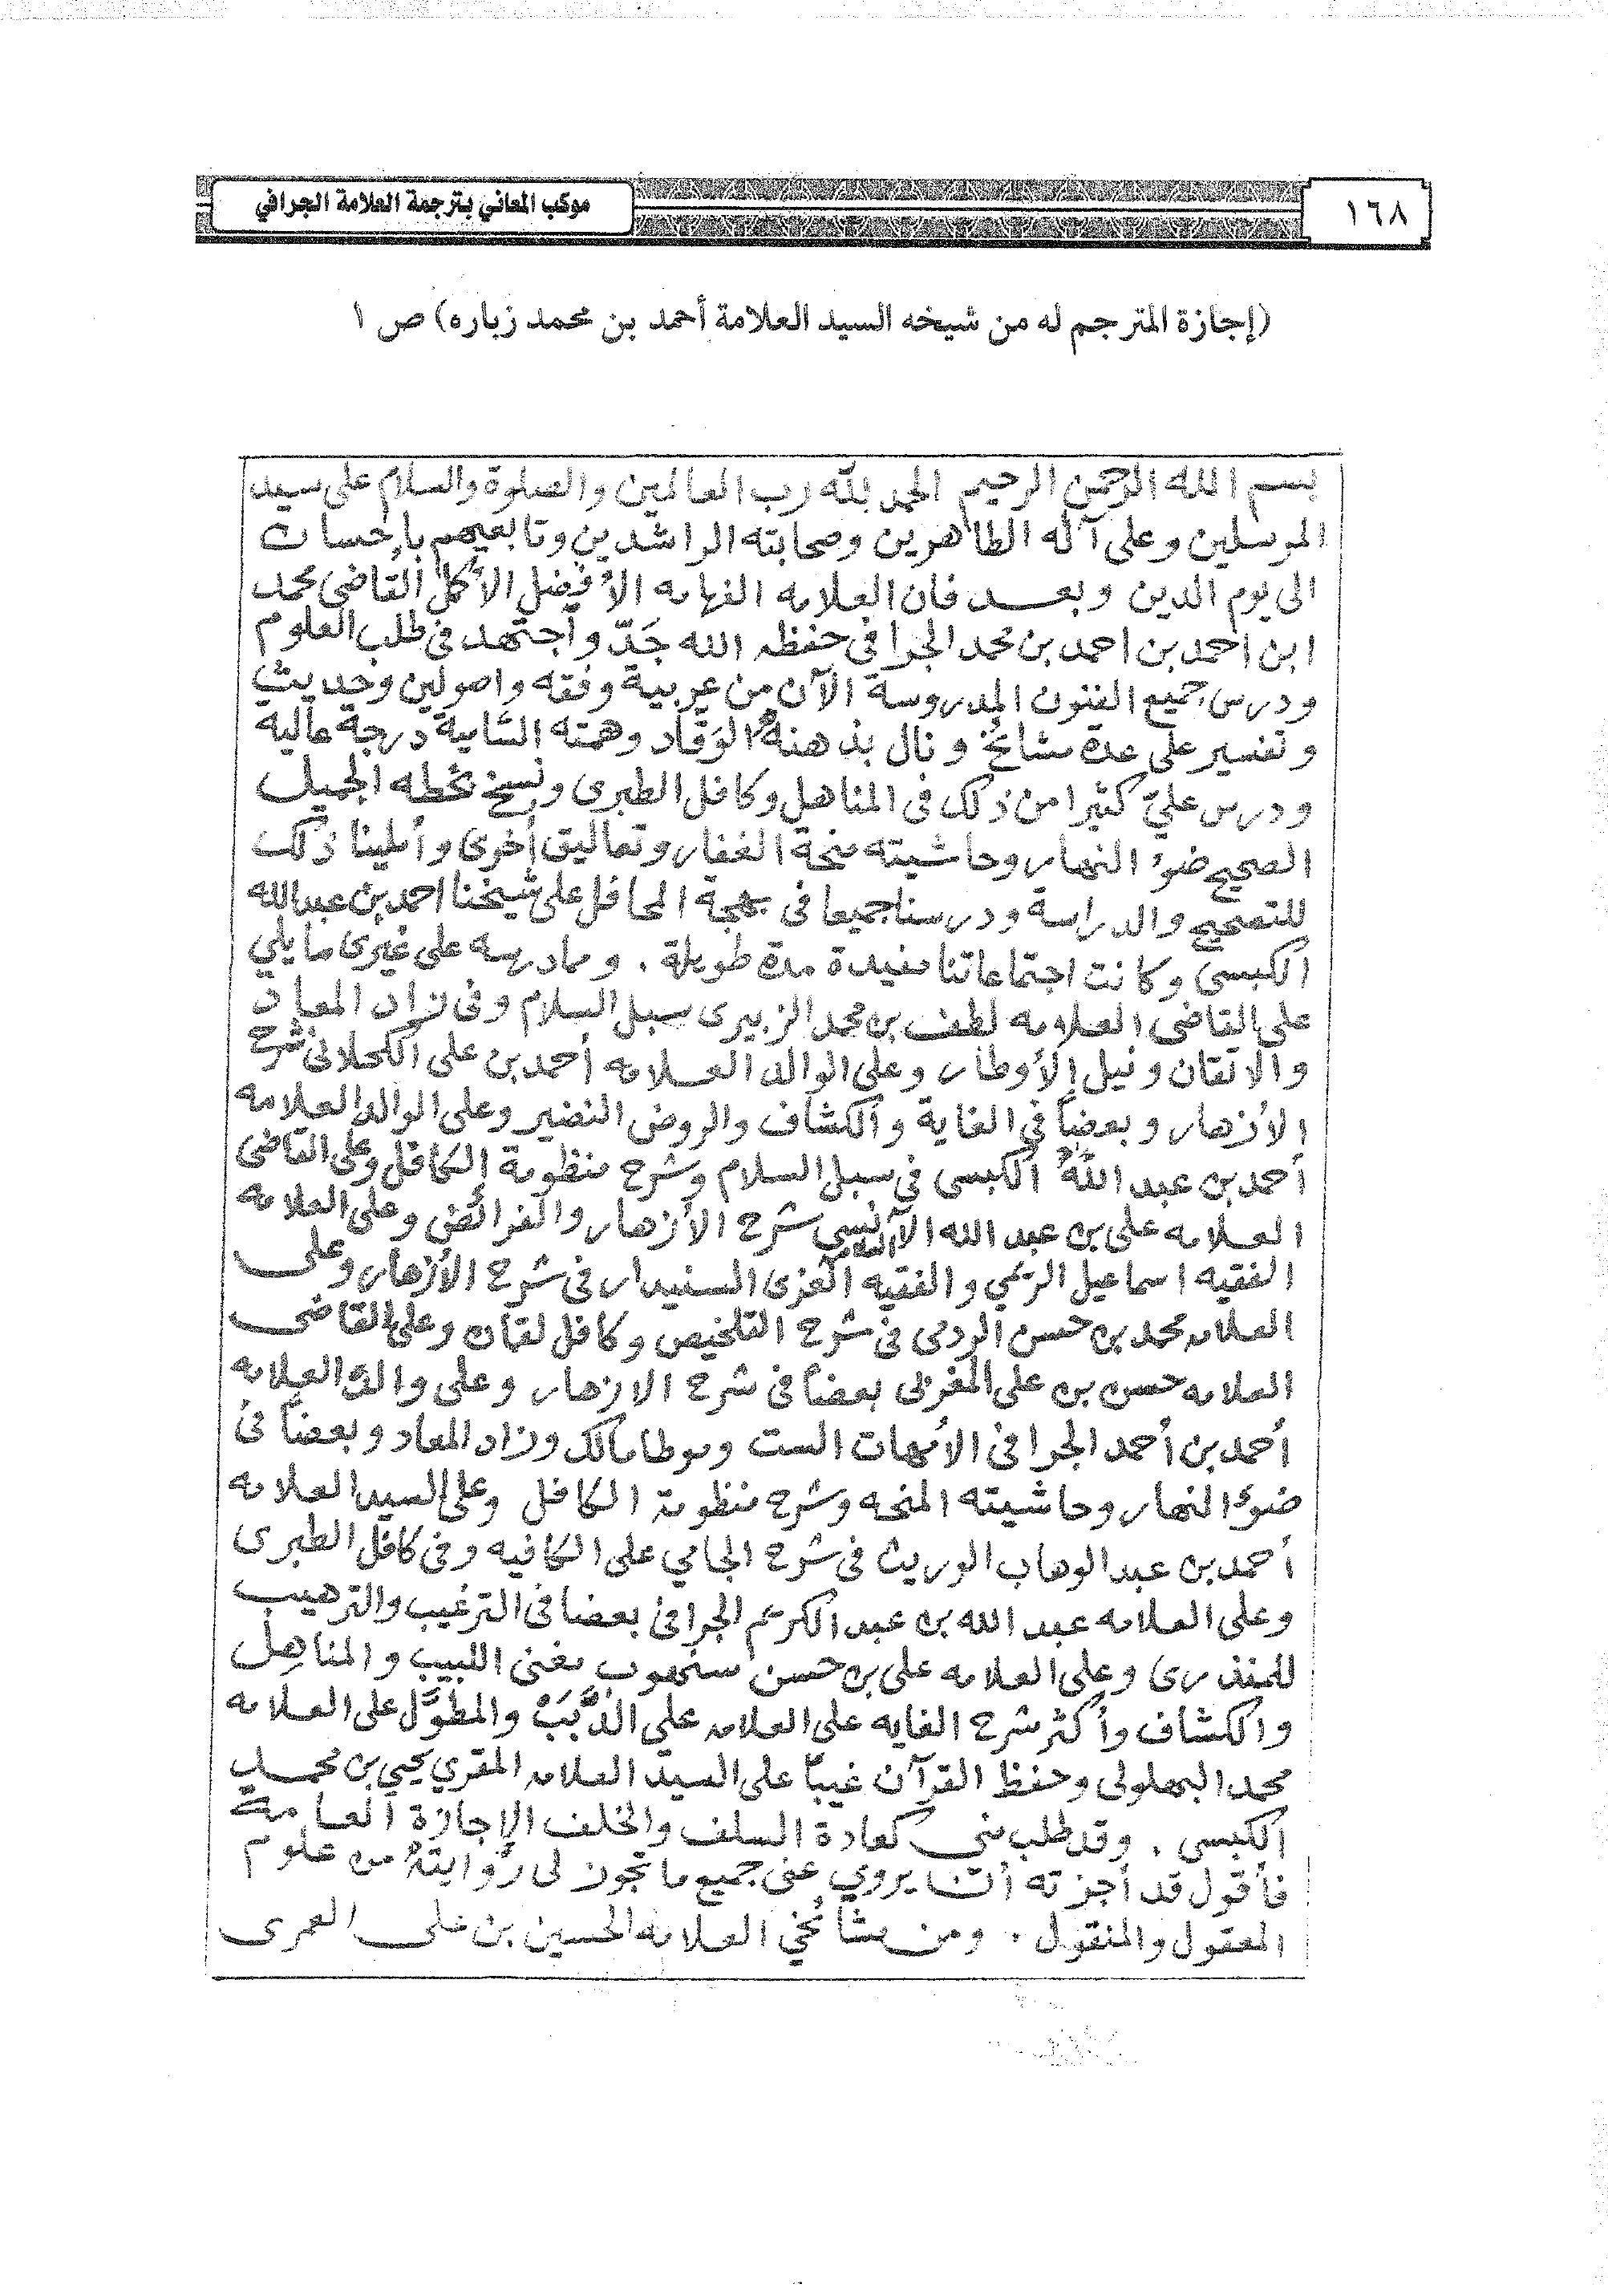 ١٦٨
موكب المعاني بترجمة العلامة الجرافي
(إجازة المترجم له من شيخه السيد العلامة أحمد بن محمد زباره) ص ١
بسم الله الرحمن الرحيم الحمد لله رب العالمين والصلوة والسلام على سيد
المرسلين وعلى آله الطاهرين وصحابته الراشدين وتابعيهم بإحسان
الى يوم الدين وبعد فان العلامه الفهامه الأفضل الأكمل القاضى محمد
ابن احمد بن احمد بن محمد الجرافي حفظه الله جَدّ وأجتهد في طلب العلوم
ودرس جميع الفنون المدروسة الآن من عربية وفقه واصولين وحديث
وتفسير على عدة مشائخ ونال بذهنه الوَقَّاد وهمته السَّامية درجة عاليه
ودرس عليّ كثيرا من ذلك في المناهل وكافل الطبرى ونسخ بخطه الجميل
الصحيح ضوء النهار وحاشيته منحة الغفار وتعاليق أخرى وأملينا ذلك
للتصحيح والدراسة ودرسنا جميعا في بهجة المحافل على شيخنا احمد بن عبدالله
الكبسى وكانت اجتماعاتنا مفيدة مدة طويلة . ومما درسه على غيرى ما يلي
على القاضى العلامه لطف بن محمد الزبيرى سبل السلام وفى زاد المعاد
والاتقان ونيل الأوطار وعلى الوالد العلامه أحمد بن على الكحلانى شرح
الأزهار وبعضاً في الغاية والكشاف والروض النضير وعلى الوالد العلامه
أحمد بن عبد الله الكبسى في سبل السلام وشرح منظومة الكافل وعلى القاضى
العلامه على بن عبد الله الآنسي شرح الأزهار والفرائض وعلى العلامه
الفقيه اسماعيل الريمي والفقيه العزى السنيدار في شرح الأزهار وعلى
العلامه محمد بن حسن الردمى في شرح التلخيص وكافل لقمان وعلى القاضى
العلامه حسن بن على المغربى بعضاً في شرح الازهار وعلى والده العلامه
أحمد بن أحمد الجرافى الأمهات الست وموطا مالك وزاد المعاد وبعضاً في
ضوء النهار وحاشيته المنحه وشرح منظومة الكافل وعلى السيد العلامه
أحمد بن عبد الوهاب الوريث في شرح الجامي على الكافيه وفى كافل الطبرى
وعلى العلامه عبد الله بن عبد الكريم الجرافى بعضا في الترغيب والترهيب
للمنذرى وعلى العلامه على بن حسن سنهوب مغنى اللبيب والمناهل
والكشاف وأكثر شرح الغايه على العلامه على الدَّبَبْ والمطوَّل على العلامه
محمد البهلولى وحفظ القرآن غيباً على السيد العلامه المقري يحيى بن محمد
الكبسى . وقد طلب منى كعادة السلف والخلف الإجازة العامة
فأقول قد أجزته أن يروي عنى جميع ما تجوز لى روايتهُ من علوم
المعقول والمنقول . ومن مشائخي العلامه الحسين بن على العمرى